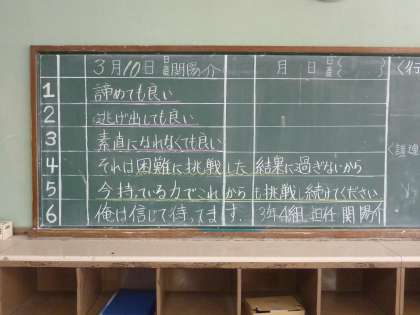 3月10日 日直 関陽介 月 日 日直 く 〈行
1 諦めても良い
2 逃げ出しても良い
3 素直になれなくても良い
4 それは困難に挑戦した結果に過ぎないから
5 今持っている力でこれからも挑戦し続けてください
6 俺は信じて待ってます. 3年4組 担任 関 陽介